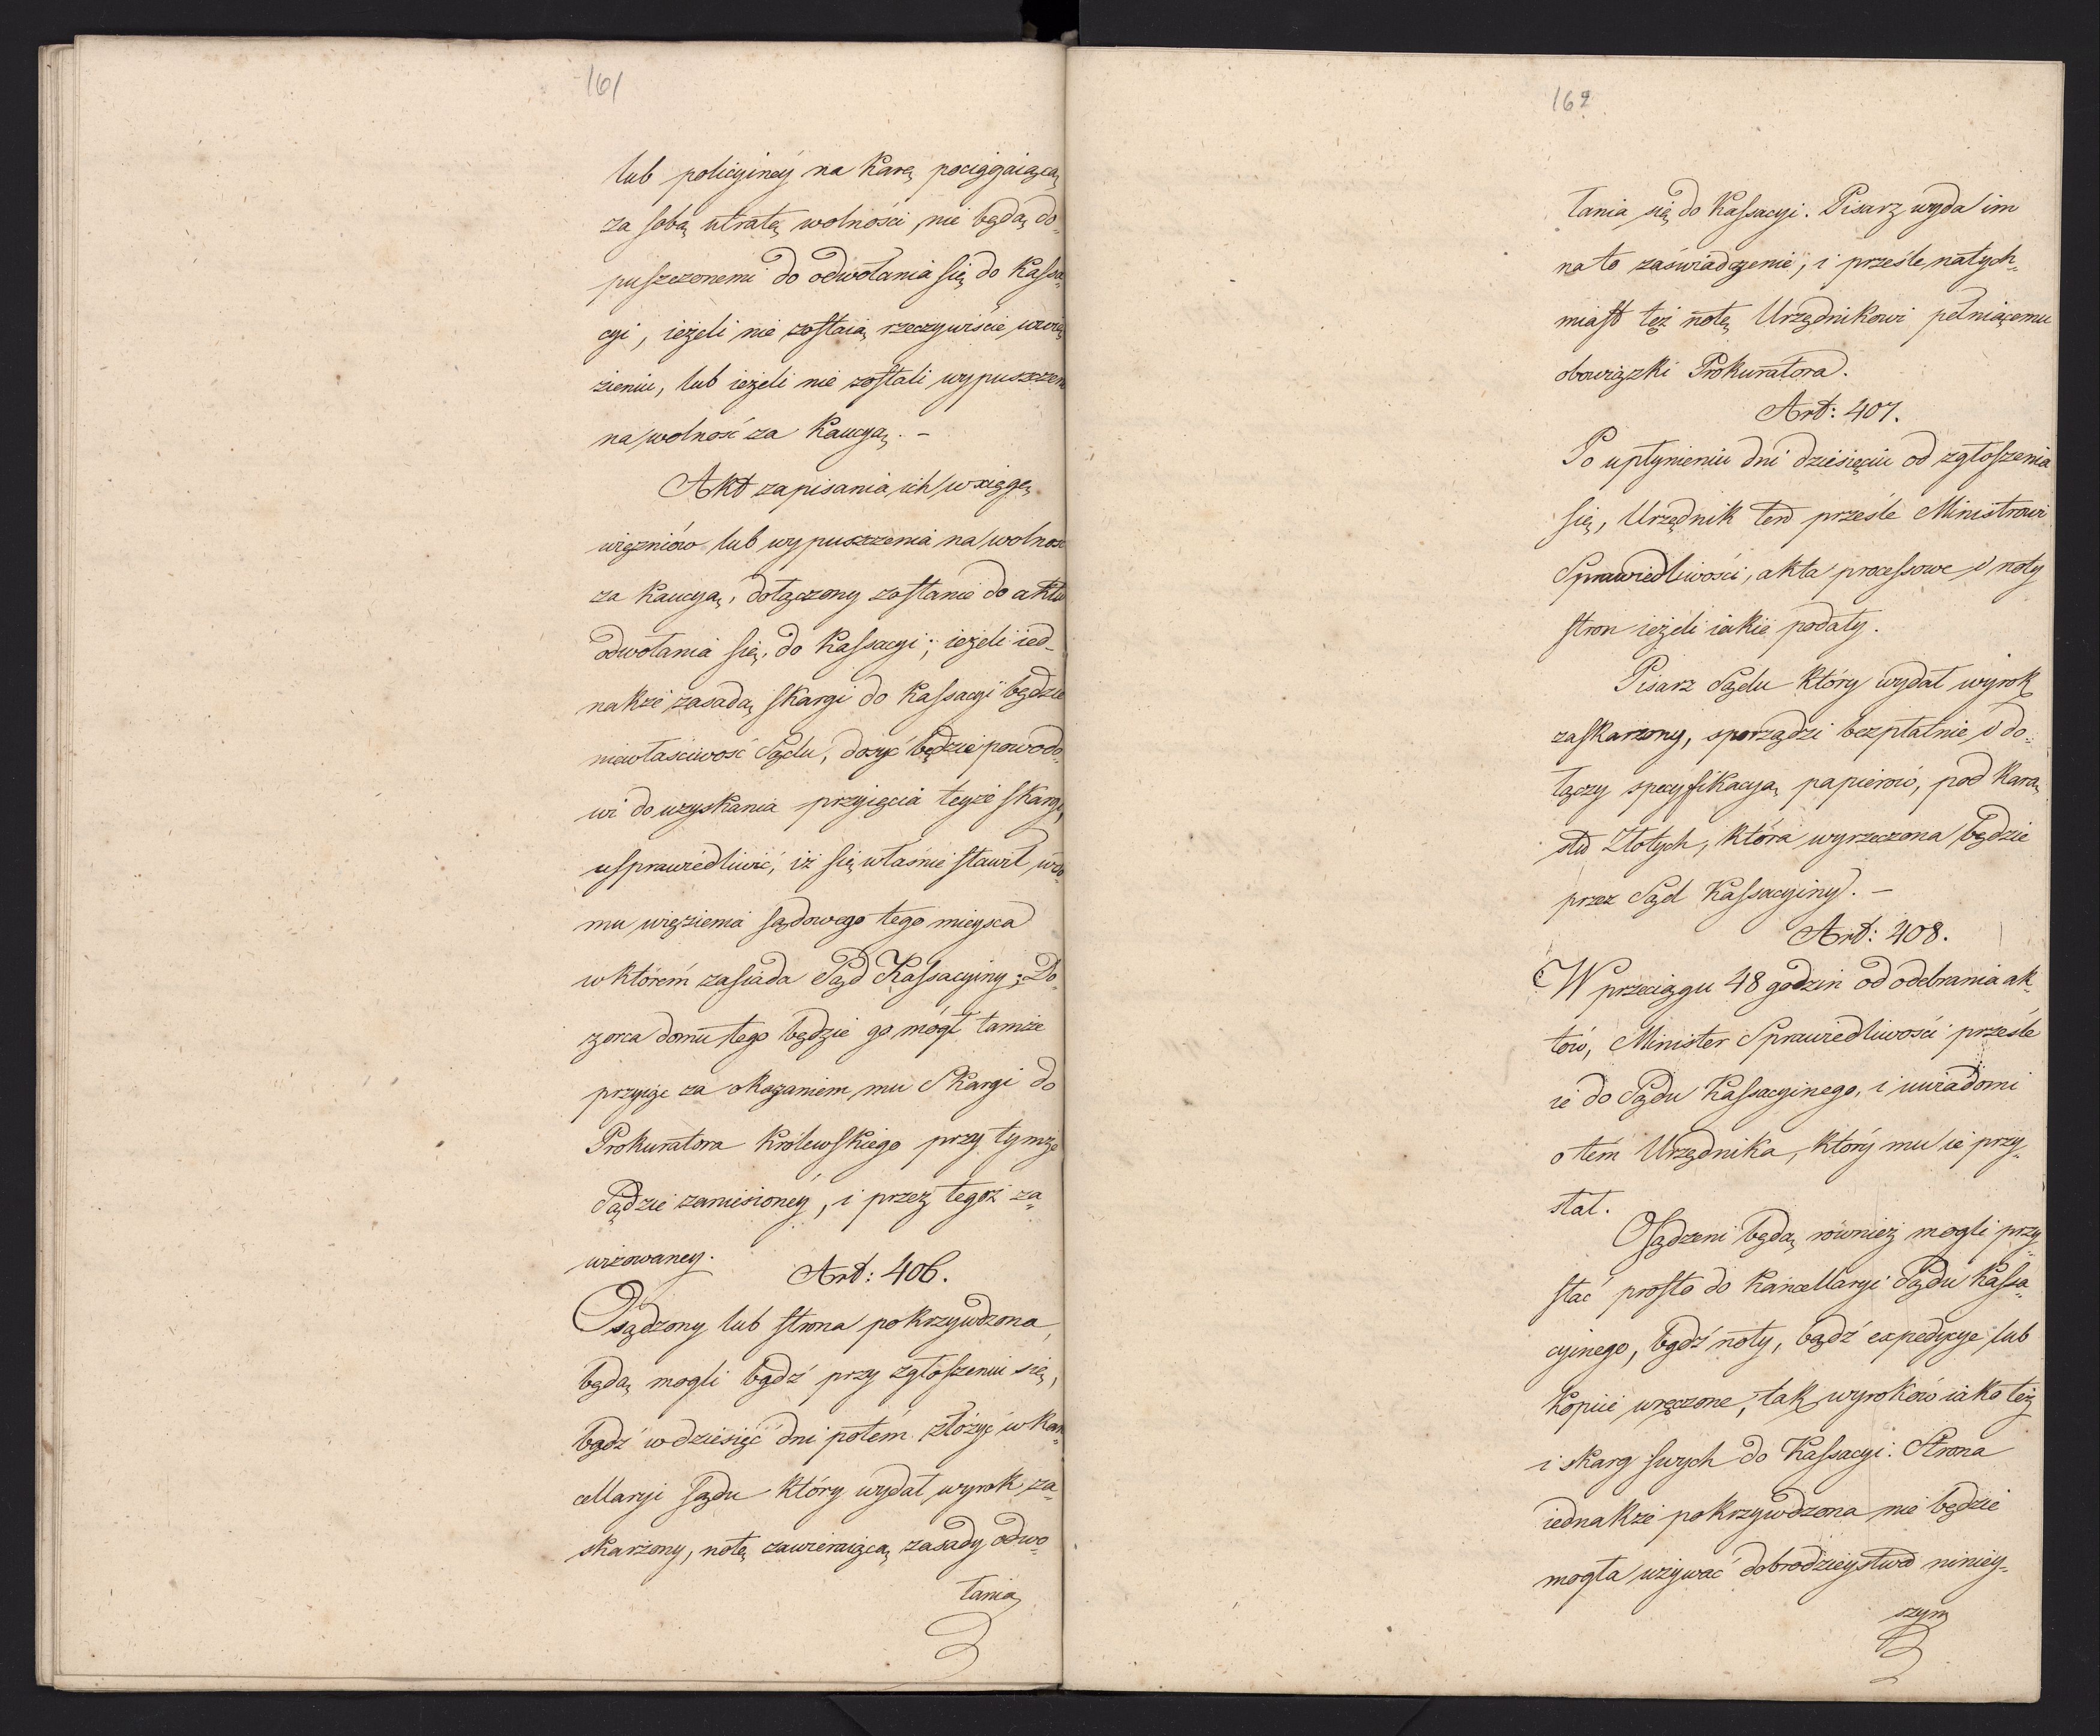 161
lub policyiney na karę pociągaiącą
za sobą utratę wolności, nie będą do„
puszczonemi do odwołania się do Kassa„
cyi, ieżeli nie zostaią rzeczywiście w wię
zieniu, lub ieżeli nie zostali wypuszczeni
na wolność za kaucyą. –
Akt zapisania ich w xięgę
więzniów lub wypuszczenia na wolność
za kaucyą, dołączony zostanie do aktu
odwołania się do Kassacyi; ieżeli ied„
nakże zasadą skargi do Kassacyi będzie
niewłaściwość Sądu, dosyć będzie powodo„
wi do uzyskania przyięcia teyże skargi,
usprawiedliwić, iż się właśnie stawił w do„
mu więzienia sądowego tego mieysca
w którem zasiada Sąd Kassacyiny; Do„
zorca domu tego będzie go mógł tamże
przyiąć za okazaniem mu Skargi do
Prokuratora Królewskiego przy tymże
Sądzie zaniesioney, i przez tegoż za„
wizowaney.
Art: 406.
Osądzony lub strona pokrzywdzona,
będą mogli bądź przy zgłoszeniu się,
bądź w dziesięć dni potém złożyć w Kan„
cellaryi Sądu który wydał wyrok za„
skarżony, notę zawieraiącą zasady odwo„
łania
162
łania się do Kassacyi. Pisarz wyda im
na to zaświadczenie, i prześle natych„
miast też notę Urzędnikowi pełniącemu
obowiązki Prokuratora.
Art: 407.
Po upłynieniu dni dziesięciu od zgłoszenia
się, Urzędnik ten prześle Ministrowi
Sprawiedliwości, akta processowe i noty
stron ieżeli iakie podały.
Pisarz Sądu który wydał wyrok
zaskarżony, sporządzi bezpłatnie i do„
łączy specyfikacyą papierów, pod karą
stu Złotych, która wyrzeczona będzie
przez Sąd Kassacyiny. –
Art: 408.
W przeciągu 48 godzin od odebrania ak„
tów, Minister Sprawiedliwości prześle
ie do Sądu Kassacyinego, i uwiadomi
o tém Urzędnika, który mu ie przy„
słał.
Osądzeni będą również mogli przy
słać prosto do Kancellaryi Sądu Kassa„
cyinego, bądź noty, bądź expedycye lub
kopiie wręczone, tak wyroków iako też
i skarg swych do Kassacyi. Strona
iednakże pokrzywdzona nie będzie
mogła używać dobrodzieystwa niniey„
szym